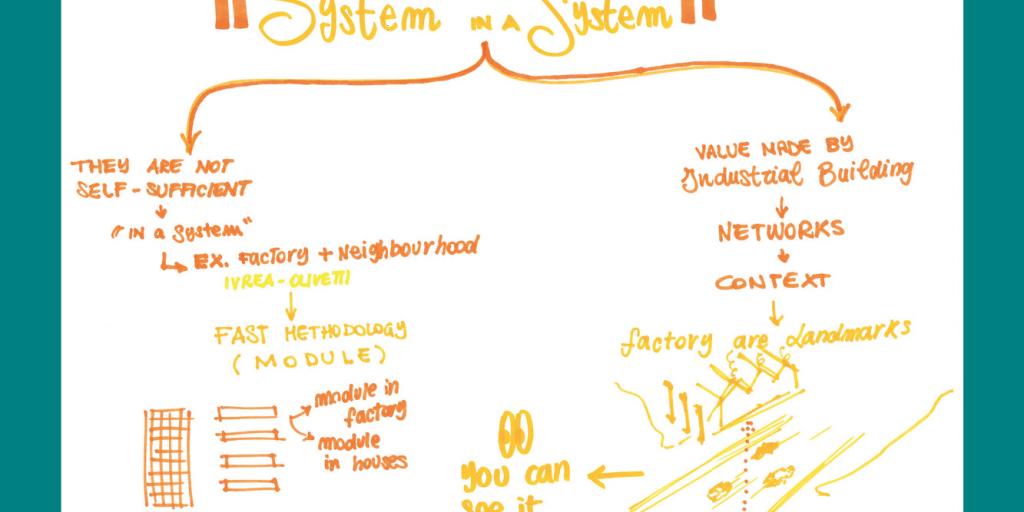 "System IN A System"
THEY ARE NOT
SELF-SUFFICIENT
"IN a System"
EX. Factory + Neighbourhood
IVREA-OLIVETTI
FAST METHODOLOGY
(MODULE)
module in
factory
module
in houses
VALUE MADE BY
Industrial Building
NETWORKS
CONTEXT
factory are Landmarks
you can
see it